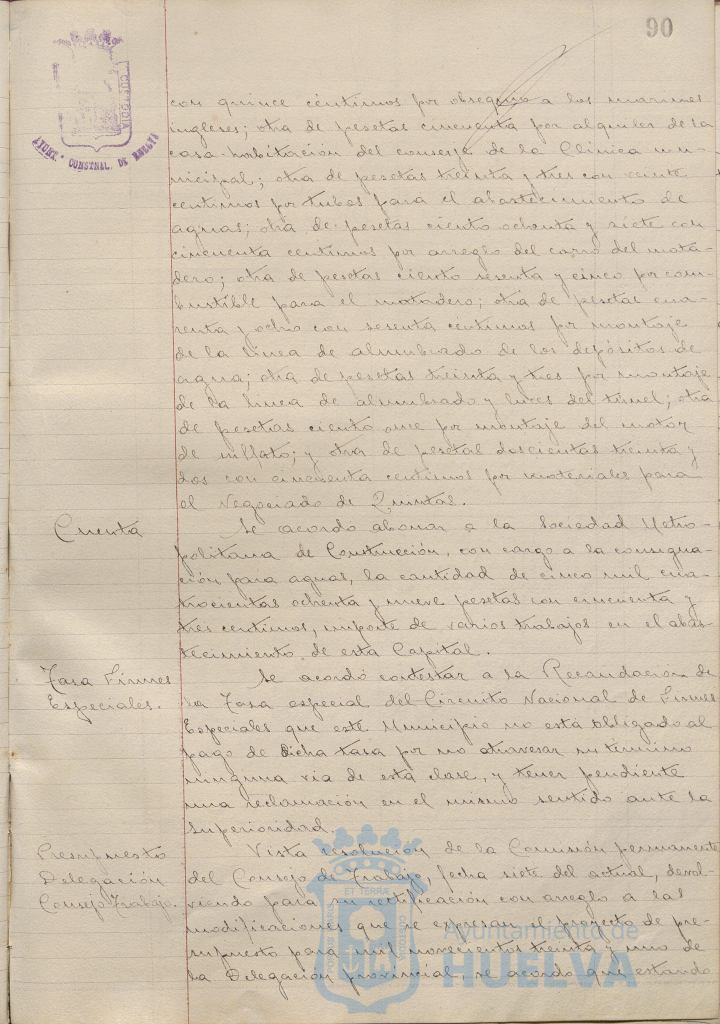 90
AYUNT.º CONSTNAL. DE HUELVA
con quince céntimos por obsequio a los marinos
ingleses; otra de pesetas cincuenta por alquiler de la
casa-habitación del conserje de la Clínica mu-
nicipal; otra de pesetas treinta y tres con veinte
centimos por tubos para el abastecimiento de
aguas; otra de pesetas ciento ochenta y siete con
cincuenta centimos por arreglo del carro del mata-
dero; otra de pesetas ciento sesenta y cinco por com-
bustible para el matadero; otra de pesetas cua-
renta y ocho con sesenta céntimos por montaje
de la línea de alumbrado de los depósitos de
agua; otra de pesetas treinta y tres por montaje
de la línea de alumbrado y luces del túnel; otra
de pesetas ciento once por montaje del motor
de; y otra de pesetas doscientas treinta y
dos con cincuenta centimos por materiales para
el Negociado de Quintas.
Cuenta
Se acordó abonar a la Sociedad Metro-
politana de Construcción, con cargo a la consigna-
ción para aguas, la cantidad de cinco mil cua-
trocientas ochenta y nueve pesetas con cincuenta y
tres centimos, importe de varios trabajos en el abas-
tecimiento de esta Capital.
Tasa Firmes
Especiales.
Se acordó contestar a la Recaudación de
la Tasa especial del Circuito Nacional de Firmes
Especiales que este Municipio no está obligado al
pago de dicha tasa por no atravesar su término
ninguna vía de esta clase, y tener pendiente
una reclamación en el mismo sentido ante la
Superioridad.
Presupuesto
Delegación
Consejo Trabajo.
Vista resolución de la Comisión permanente
del Consejo de Trabajo, fecha siete del actual, devol-
viendo para su rectificación con arreglo a las
modificaciones que se expresan el proyecto de pre-
supuesto para mil novecientos treinta y uno de
la Delegación provincial, se acordó que estando
Ayuntamiento de
HUELVA